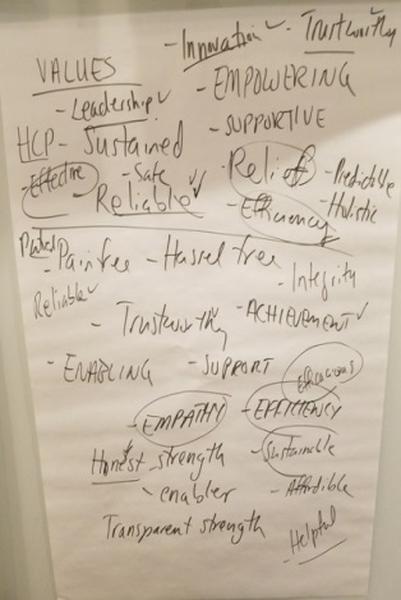 - Innovation - Trustworthy
VALUES
- EMPOWERING
- Leadership
- SUPPORTIVE
HCP - Sustained
- Effective - Safe
- Relief - Predictable
- Reliable
- Efficiency - Holistic
- Painfree - Hassel free
- Integrity
Reliable
- Trustworthy - ACHIEVEMENT
- ENABLING - SUPPORT
Efficacious
- EMPATHY - EFFICIENCY
Honest strength - Sustainable
- enabler - Affordible
Transparent strength
- Helpful